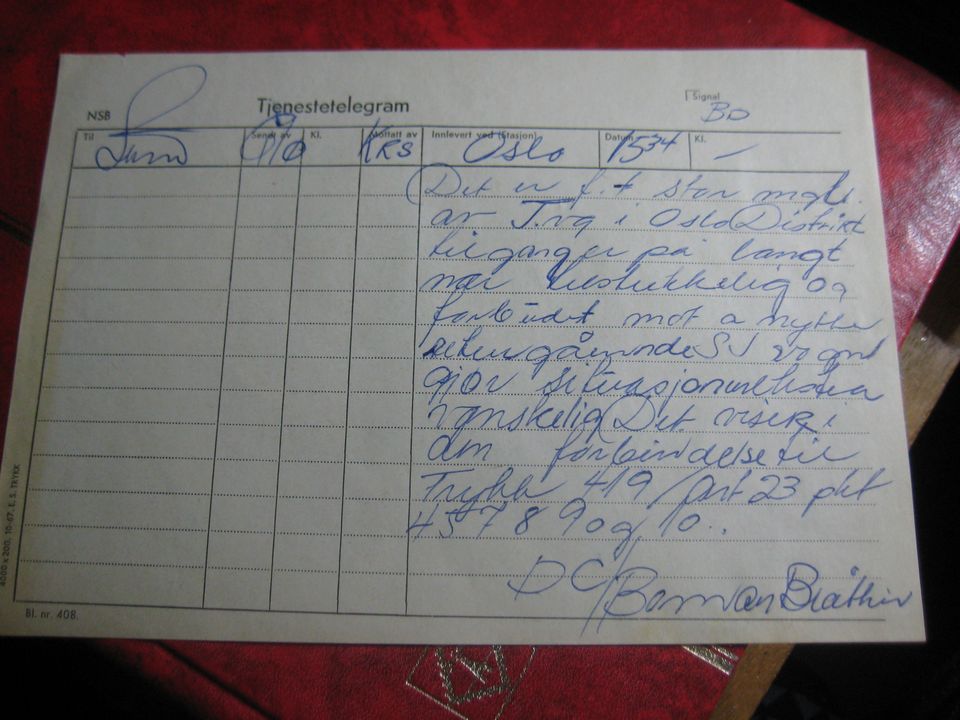 NSB Tjenestetelegram Signal BD
Til Sendt av Kl. Mottatt av Innlevert ved (Stasjon) Datum Kl.
KRS Oslo 1534 –
Det er f.t stor
av T.vg i Oslo Distrikt
tilganger på langt
nær tilstrekkelig og
forbudet mot å nytte
gjør situasjonen
vanskelig Det vises i
den forbindelse til
Trykk 419 part 23 pkt
4 5 7 8 9 og 10.
DC/
4000 x 200. 10-67. E. S. TRYKK
Bl. nr. 408.